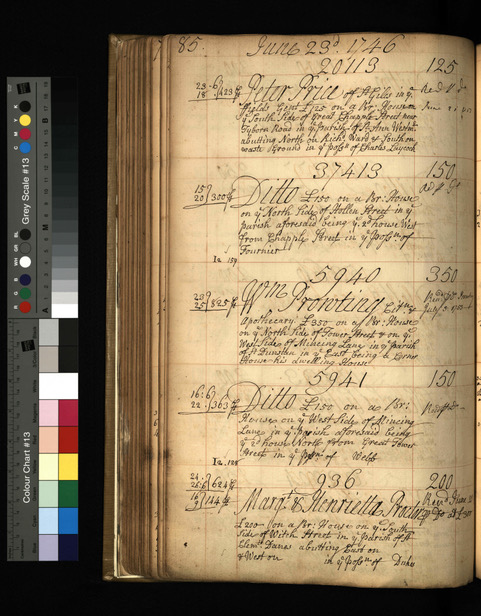 85. June 23d. 1746
20113 125
Peter Price of St Giles in ye
ffields Gent £125 on a Br: House on
ye South Side of Great Chapple Street near
Tyborn Road in ye parish of St Ann Westmr
abutting North on Richd Ward & South on
waste Ground in ye possn of Charles Laycock
37413 150
Ditto £150 on a Br: House
on ye North Side of Hollen Street in ye
parish aforesaid being ye 2d house West
from Chapple Street in ye possn of
Fournier
5940 350
Wm Prowting Citn &
Apothecary £350 on a Br: House
on ye North Side of Tower Street & on ye
West Side of Mincing Lane in ye parish
of St Dunstan in ye East being a Corner
House his dwelling House
5941 150
Ditto £150 on a Br:
House on ye West Side of Mincing
Lane in ye parish aforesaid being
ye 2d house North from Great Tower
Street in ye possn of Webb
936 200
Margt & Henrietta
£200 on a Br: House on ye South
Side of Witch Street in ye parish of St
Clemt Danes abutting East on
& West on in ye possn of Duke
Grey Scale #13
Colour Chart #13